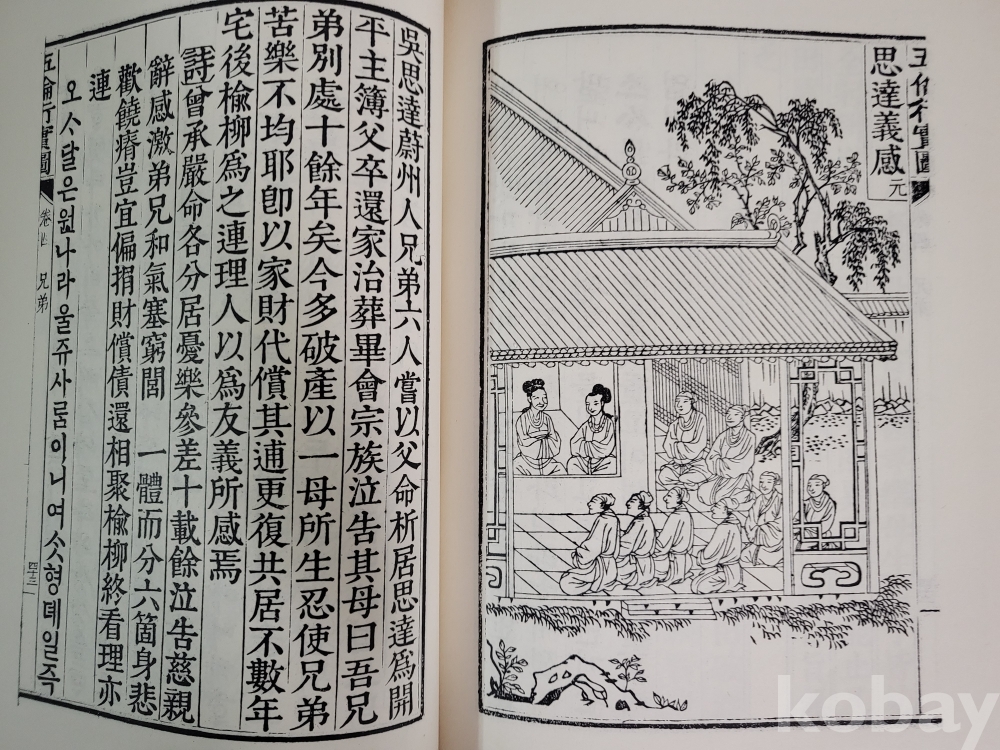 五倫行實圖
思達義感 元
吳思達蔚州人兄弟六人嘗以父命析居思達爲開
平主簿父卒還家治葬畢會宗族泣告其母曰吾兄
弟別處十餘年矣今多破產以一母所生忍使兄弟
苦樂不均耶卽以家財代償其逋更復共居不數年
宅後楡柳爲之連理人以爲友義所感焉
詩曾承嚴命各分居憂樂參差十載餘泣告慈親
辭感激弟兄和氣塞窮閭 一體而分六箇身悲
歡饒瘠豈宜偏捐財償債還相聚楡柳終看理亦
連
오ᄉᆞ달은원나라울쥬사ᄅᆞᆷ이니여ᄉᆞᆺ형뎨일즉
五倫行實圖 卷 兄弟 四十三
kobay